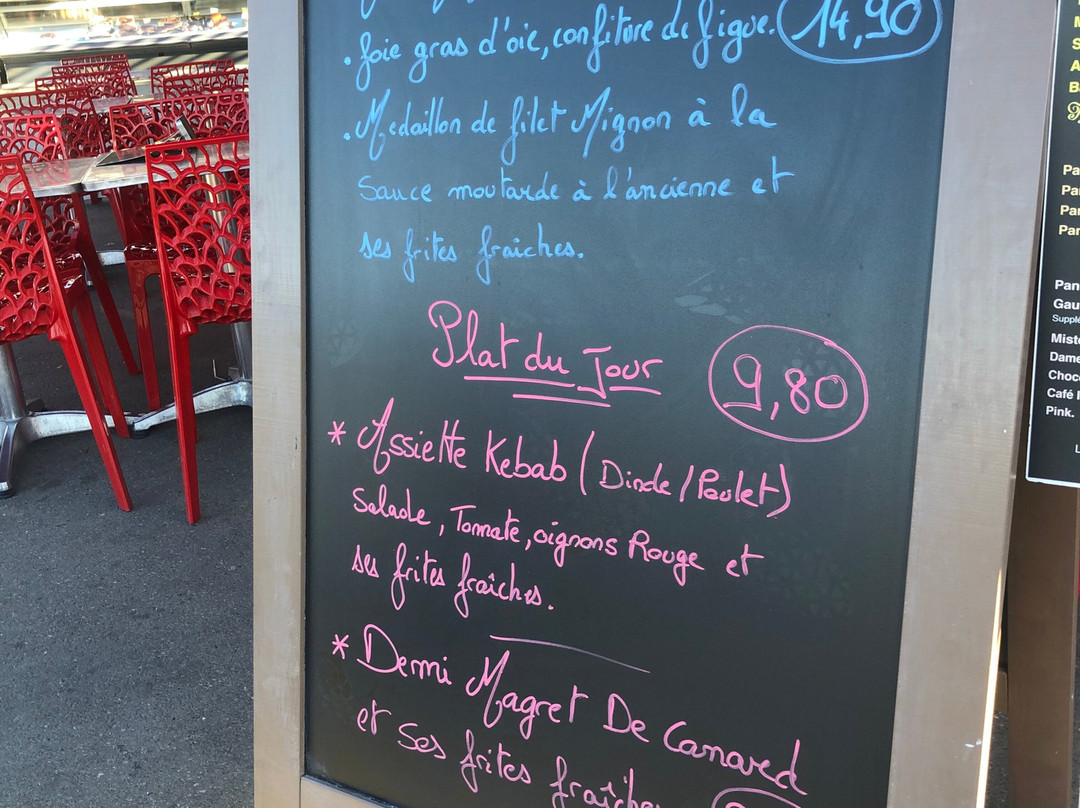 . foie gras d'oie, confiture de figue. 14,90
. Medaillon de filet Mignon à la
sauce moutarde à l'ancienne et
ses frites fraiches.
Plat du Jour 9,80
* Assiette Kebab (Dinde / Poulet)
Salade, Tomate, oignons Rouge et
ses frites fraîches.
* Demi Magret De Canard
et ses frites
Pan
Gau
Supplé
Miste
Dame
Choco
Café l
Pink.